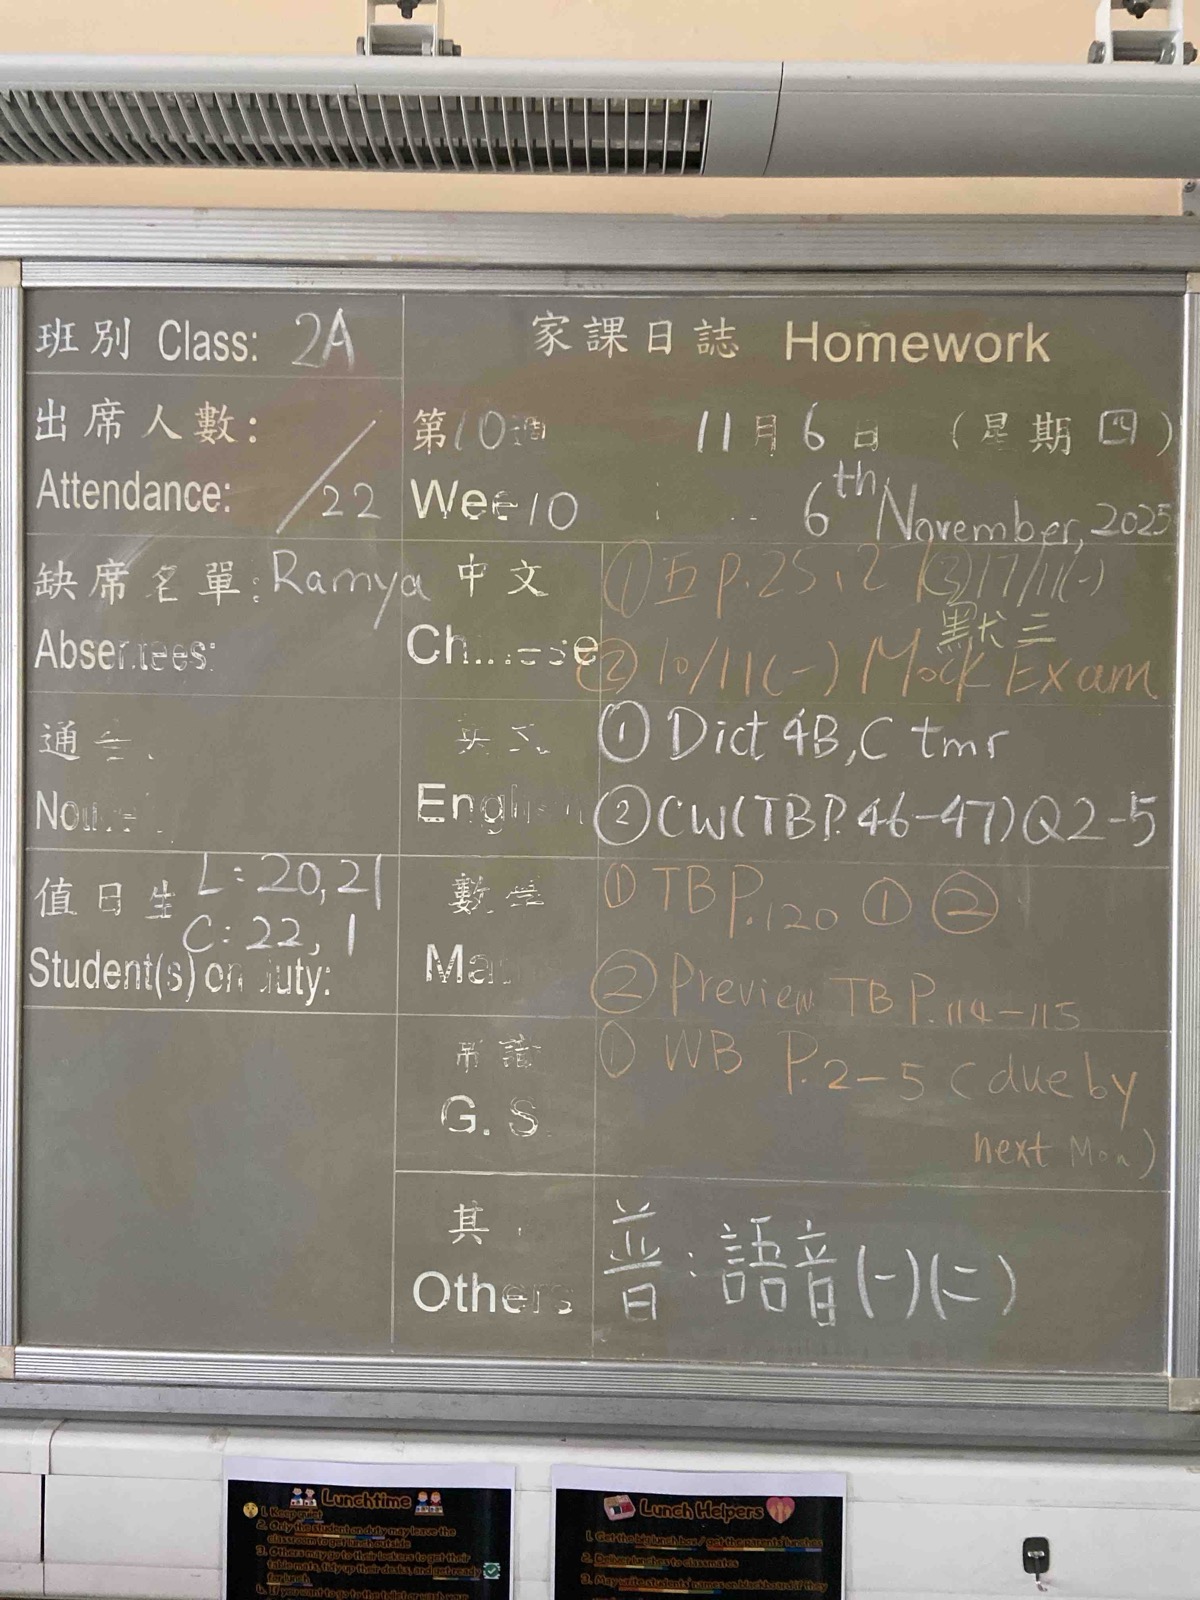 班別 Class: 2A
家課日誌 Homework
出席人數:
Attendance: /22
第10週 11月6日 (星期四)
Wee 10 6th November, 2025
缺席名單: Ramya
Absentees:
中文
Chinese
① 五 P.25、2 ③ 17/11(一)
默三
② 10/11(一) Mock Exam
通告
英文
English
① Dict 4B,C tmr
② CW(TBP.46-47)Q2-5
值日生 L: 20,21
C: 22, 1
Student(s) on duty:
數學
Ma
① TBP.120 ① ②
② Preview TBP.114-115
常識
G. S
① WB P.2-5 (due by
next Mon)
其
Others
普: 語音(一)(二)
Lunchtime
1. Keep quiet
2. Only the student on duty may leave the
classroom to get lunch outside
3. Others may go to their lockers to get their
table mats, tidy up their desks and get ready
for lunch
4. If you want to go to the toilet or wash your
Lunch Helpers
1. Get the big lunch box / get the parents' lunches
2. Deliver lunches to classmates
3. May write students' names on blackboard if they